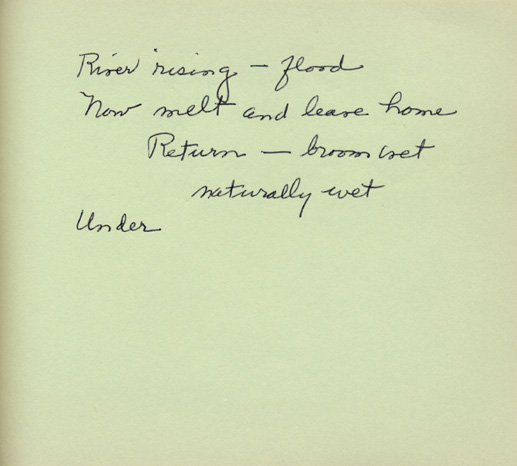 River rising — flood
Now melt and leave home
Return — broom wet
naturally wet
Under